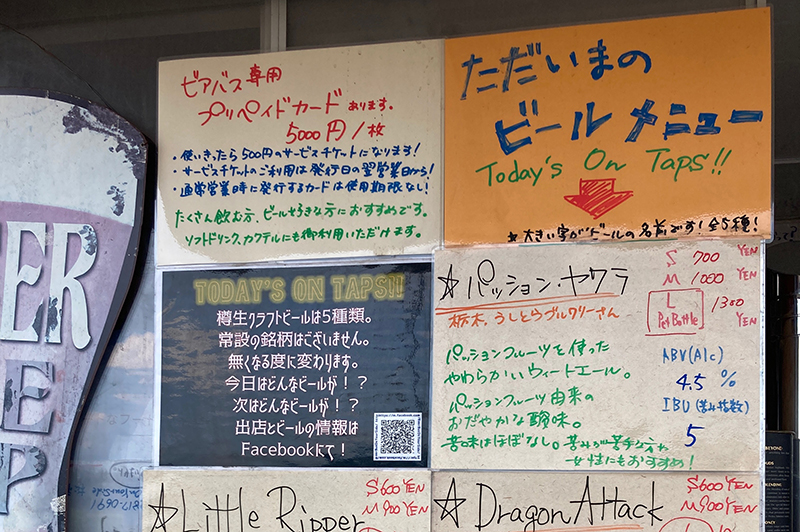 ビアバス専用
プリペイドカード あります。
5000円/枚
・使いきったら500円のサービスチケットになります!
・サービスチケットのご利用は発行日の翌営業日から!
・通常営業時に発行するカードは使用期限なし!
たくさん飲む方、ビール好きな方におすすめです。
ソフトドリンク、カクテルにも御利用いただけます。
ただいまの
ビールメニュー
Today's On Taps!!
★大きい字がビールの名前です!全5種!
TODAY'S ON TAPS!!
樽生クラフトビールは5種類。
常設の銘柄はございません。
無くなる度に変わります。
今日はどんなビールが!?
次はどんなビールが!?
出店とビールの情報は
Facebookにて!
☆パッション・ヤウラ
栃木、うしとらブルワリーさん
S 700 YEN
M 1000 YEN
L Pet Bottle 1300 YEN
パッションフルーツを使った
やわらかいウィートエール。
パッションフルーツ由来の
おだやかな酸味。
苦味はほぼなし。苦みが苦手な方や
女性にもおすすめ!
ABV(Alc)
4.5 %
IBU (苦み指数)
5
☆Little Ripper
S 600 YEN
M 900 YEN
☆Dragon Attack
S 600 YEN
M 900 YEN
ER